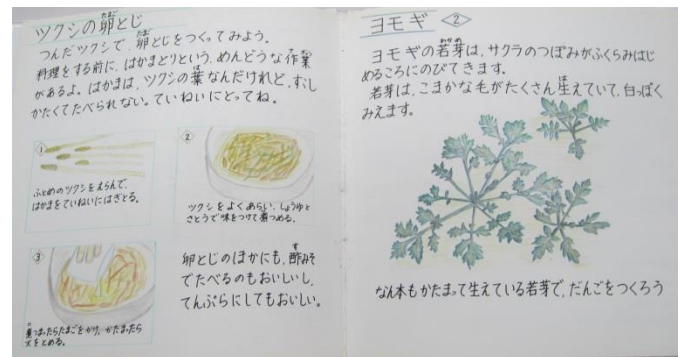 ツクシの卵とじ
つんだツクシで、卵とじをつくってみよう。
料理をする前に、はかまとりという、めんどうな作業
があるよ。はかまは、ツクシの葉なんだけれど、すこし
かたくてたべられない。ていねいにとってね。
①
ふとめのツクシをえらんで、
はかまをていねいにはぎとる。
②
ツクシをよくあらい、しょうゆと
さとうで味をつけて煮つめる。
③
煮つまったらたまごをかけ、かたまったら
火をとめる。
卵とじのほかにも、酢みそ
でたべるのもおいしいし、
てんぷらにしてもおいしい。
ヨモギ ②
ヨモギの若芽は、サクラのつぼみがふくらみはじ
めるころにのびてきます。
若芽は、こまかな毛がたくさん生えていて、白っぽく
みえます。
なん本もかたまって生えている若芽で、だんごをつくろう